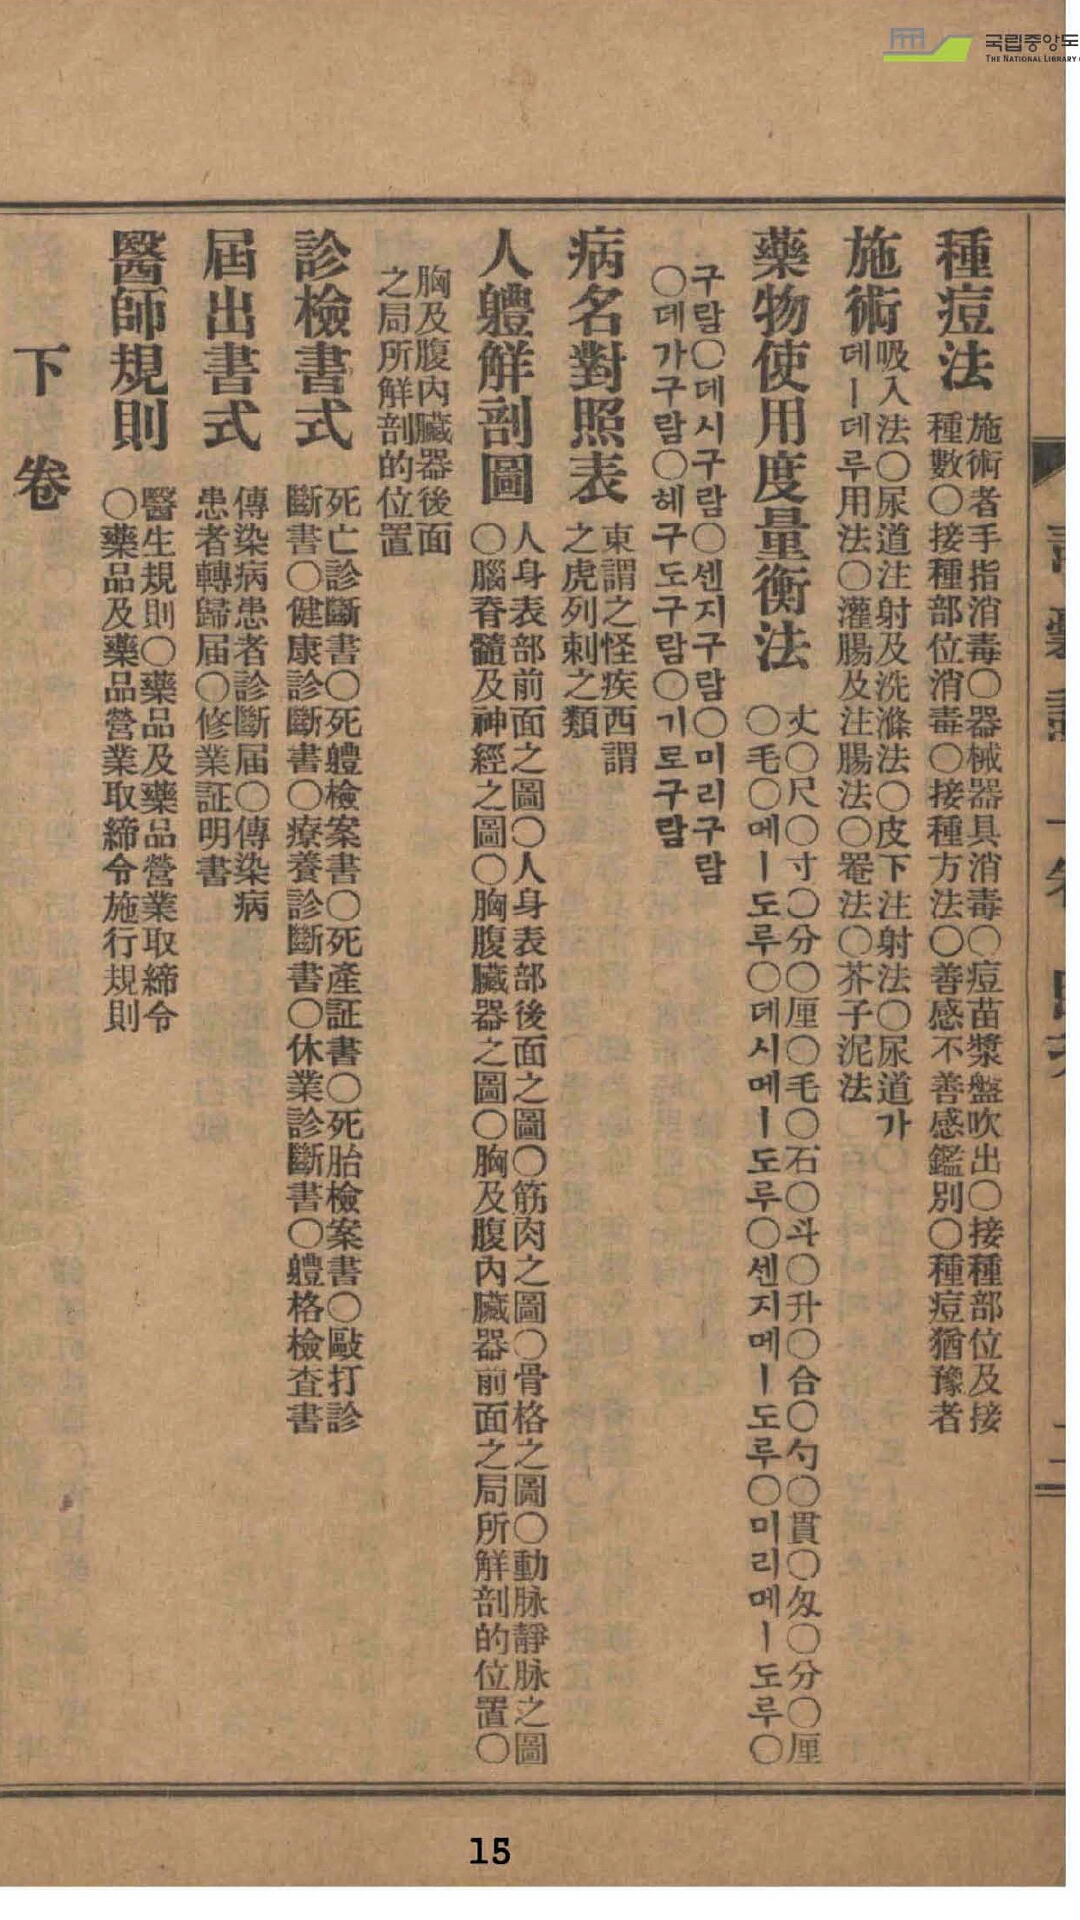 국립중앙도
THE NATIONAL LIBRARY
種痘法
施術者手指消毒〇器械器具消毒〇痘苗漿盤吹出〇接種部位及接
種數〇接種部位消毒〇接種方法〇善感不善感鑑別〇種痘猶豫者
施術
吸入法〇尿道注射及洗滌法〇皮下注射法〇尿道가
데ㅣ데루用法〇灌腸及注腸法〇罨法〇芥子泥法
藥物使用度量衡法
丈〇尺〇寸〇分〇厘〇毛〇石〇斗〇升〇合〇勺〇貫〇匁〇分〇厘
〇毛〇메ㅣ도루〇데시메ㅣ도루〇센지메ㅣ도루〇미리메ㅣ도루〇
구람〇데시구람〇센지구람〇미리구람
〇데가구람〇헤구도구람〇기로구람
病名對照表
東謂之怪疾西謂
之虎列刺之類
人軆解剖圖
人身表部前面之圖〇人身表部後面之圖〇筋肉之圖〇骨格之圖〇動脉靜脉之圖
〇腦脊髓及神經之圖〇胸腹臟器之圖〇胸及腹內臟器前面之局所解剖的位置〇
胸及腹內臟器後面
之局所解剖的位置
診檢書式
死亡診斷書〇死軆檢案書〇死產証書〇死胎檢案書〇毆打診
斷書〇健康診斷書〇療養診斷書〇休業診斷書〇軆格檢査書
屆出書式
傳染病患者診斷届〇傳染病
患者轉歸届〇修業証明書
醫師規則
醫生規則〇藥品及藥品營業取締令
〇藥品及藥品營業取締令施行規則
下卷
15